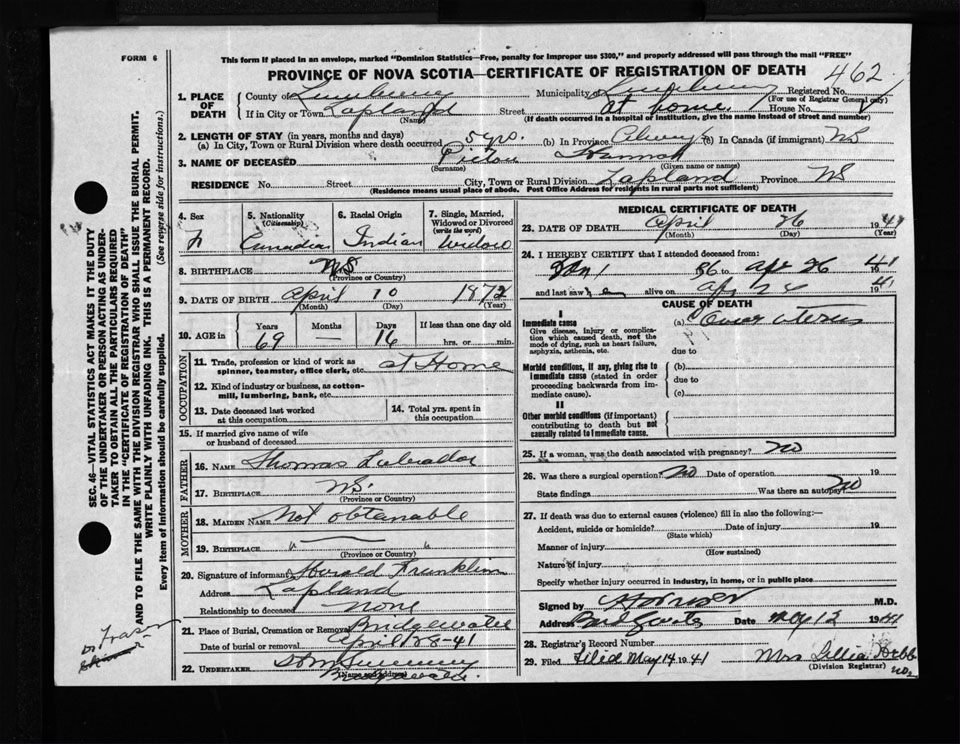 FORM 6
This form if placed in an envelope, marked "Dominion Statistics—Free, penalty for improper use $300," and properly addressed will pass through the mail "FREE"
PROVINCE OF NOVA SCOTIA—CERTIFICATE OF REGISTRATION OF DEATH
462
1. PLACE OF DEATH
County of Lunenburg Municipality of Lunenburg Registered No.
(For use of Registrar General only)
If in City or Town Lapland Street at home House No.
(Name)
(If death occurred in a hospital or institution, give the name instead of street and number)
2. LENGTH OF STAY (in years, months and days)
(a) In City, Town or Rural Division where death occurred 5 yrs. (b) In Province Always (c) In Canada (if immigrant) NS
3. NAME OF DECEASED Pictou Hannah
(Surname) (Given name or names)
RESIDENCE No. Street City, Town or Rural Division Lapland Province NS
(Residence means usual place of abode. Post Office Address for residents in rural parts not sufficient)
4. Sex F
5. Nationality (Citizenship) Canadian
6. Racial Origin Indian
7. Single, Married, Widowed or Divorced (write the word) Widow
8. BIRTHPLACE N.S
(Province or Country)
9. DATE OF BIRTH April 10 1872
(Month) (Day) (Year)
10. AGE in Years Months Days If less than one day old
69 — 16 hrs. or min.
OCCUPATION
11. Trade, profession or kind of work as spinner, teamster, office clerk, etc. at Home
12. Kind of industry or business, as cotton-mill, lumbering, bank, etc.
13. Date deceased last worked at this occupation
14. Total yrs. spent in this occupation
15. If married give name of wife or husband of deceased
FATHER
16. NAME Thomas Labrador
17. BIRTHPLACE N.S.
(Province or Country)
MOTHER
18. MAIDEN NAME Not obtainable
19. BIRTHPLACE " "
(Province or Country)
20. Signature of informant Harold Franklin
Address Lapland
Relationship to deceased none
21. Place of Burial, Cremation or Removal Bridgewater
Date of burial or removal April 28-41
22. UNDERTAKER
(Name and address) Bridgewater
MEDICAL CERTIFICATE OF DEATH
23. DATE OF DEATH April 26 1941
(Month) (Day) (Year)
24. I HEREBY CERTIFY that I attended deceased from:
Jan 1 36 to Apr 26 1941
and last saw her alive on Apr 26 1941
CAUSE OF DEATH
I
Immediate cause
Give disease, injury or complication which caused death, not the mode of dying, such as heart failure, asphyxia, asthenia, etc.
(a) Cancer uterus
due to
Morbid conditions, if any, giving rise to immediate cause (stated in order proceeding backwards from immediate cause).
(b)
due to
(c)
II
Other morbid conditions (if important) contributing to death but not causally related to immediate cause.
25. If a woman, was the death associated with pregnancy? no
26. Was there a surgical operation no Date of operation 19
State findings Was there an autopsy no
27. If death was due to external causes (violence) fill in also the following:—
Accident, suicide or homicide? Date of injury 19
(State which)
Manner of injury
(How sustained)
Nature of injury
Specify whether injury occurred in industry, in home, or in public place
Signed by M.D.
Address Bridgewater Date May 12 1941
28. Registrar's Record Number
29. Filed Filed May 14 1941 Mrs Lillia Hebb
(Division Registrar)
SEC. 46—VITAL STATISTICS ACT MAKES IT THE DUTY
OF THE UNDERTAKER OR PERSON ACTING AS UNDER-
TAKER TO OBTAIN ALL THE PARTICULARS REQUIRED
IN THE "CERTIFICATE OF REGISTRATION OF DEATH"
AND TO FILE THE SAME WITH THE DIVISION REGISTRAR WHO SHALL ISSUE THE BURIAL PERMIT.
WRITE PLAINLY WITH UNFADING INK. THIS IS A PERMANENT RECORD.
Every item of information should be carefully supplied. (See reverse side for instructions.)